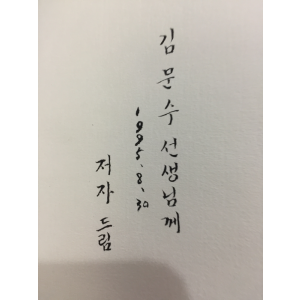 김문수 선생님께
1995. 8. 30
저자 드림